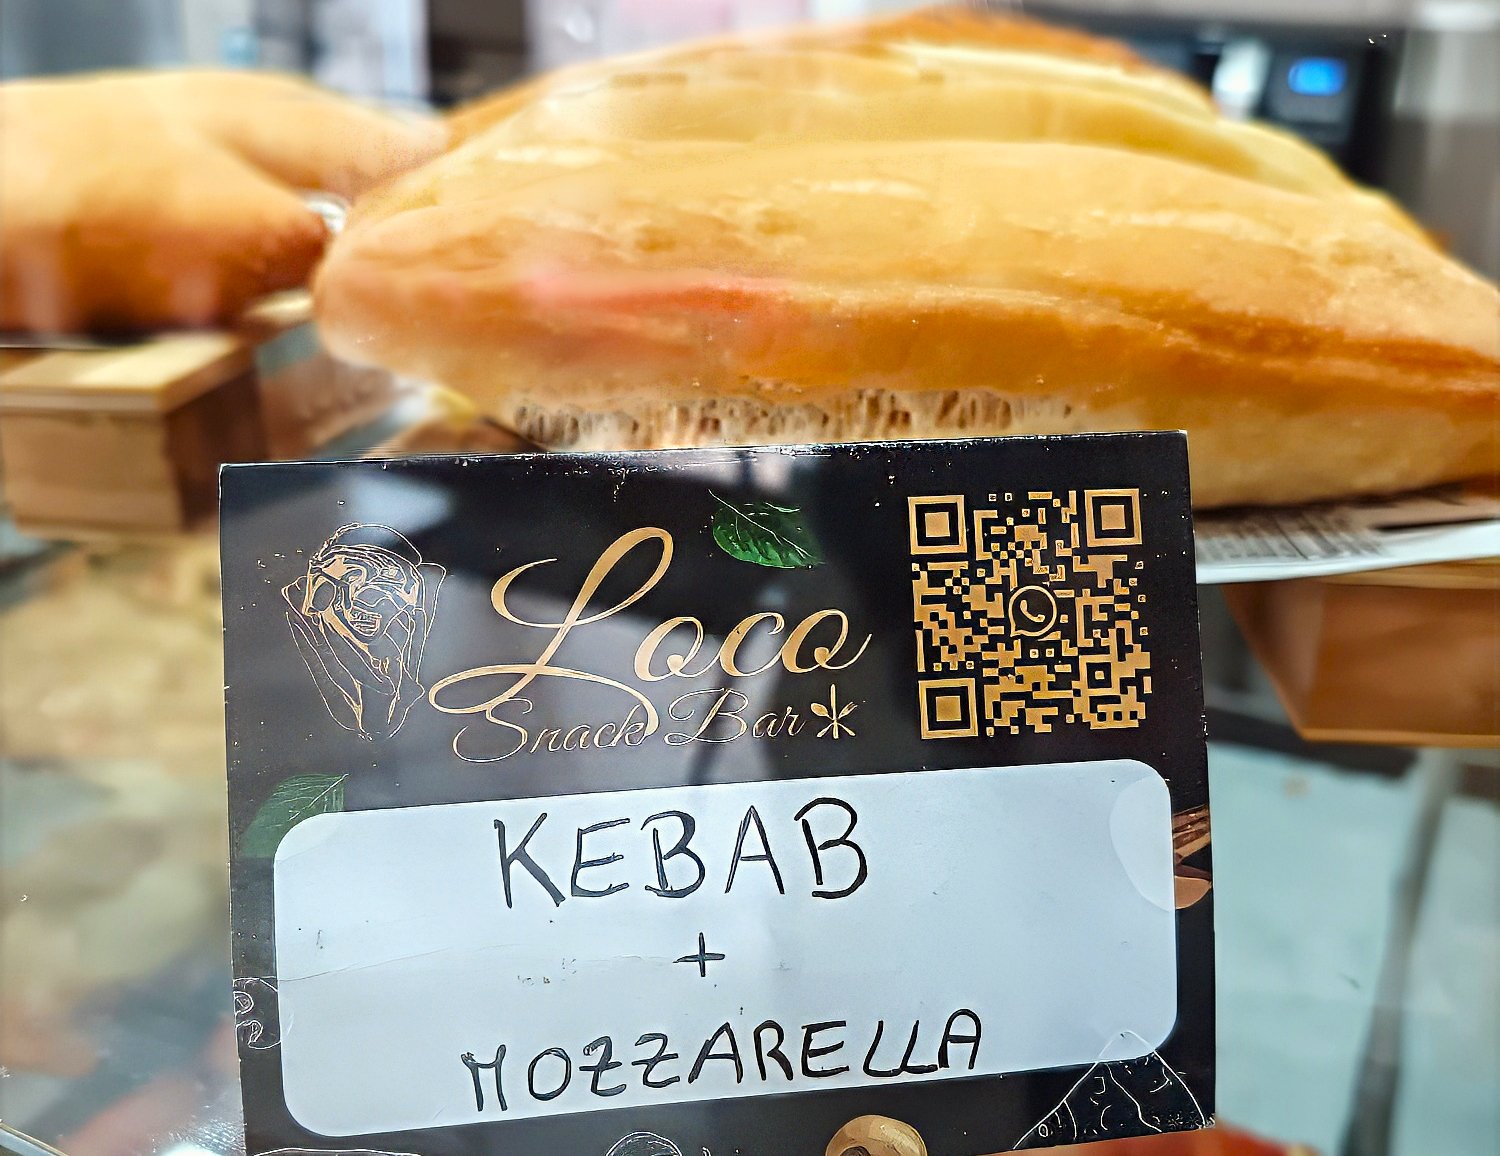 Loco
Snack Bar
KEBAB
+
MOZZARELLA